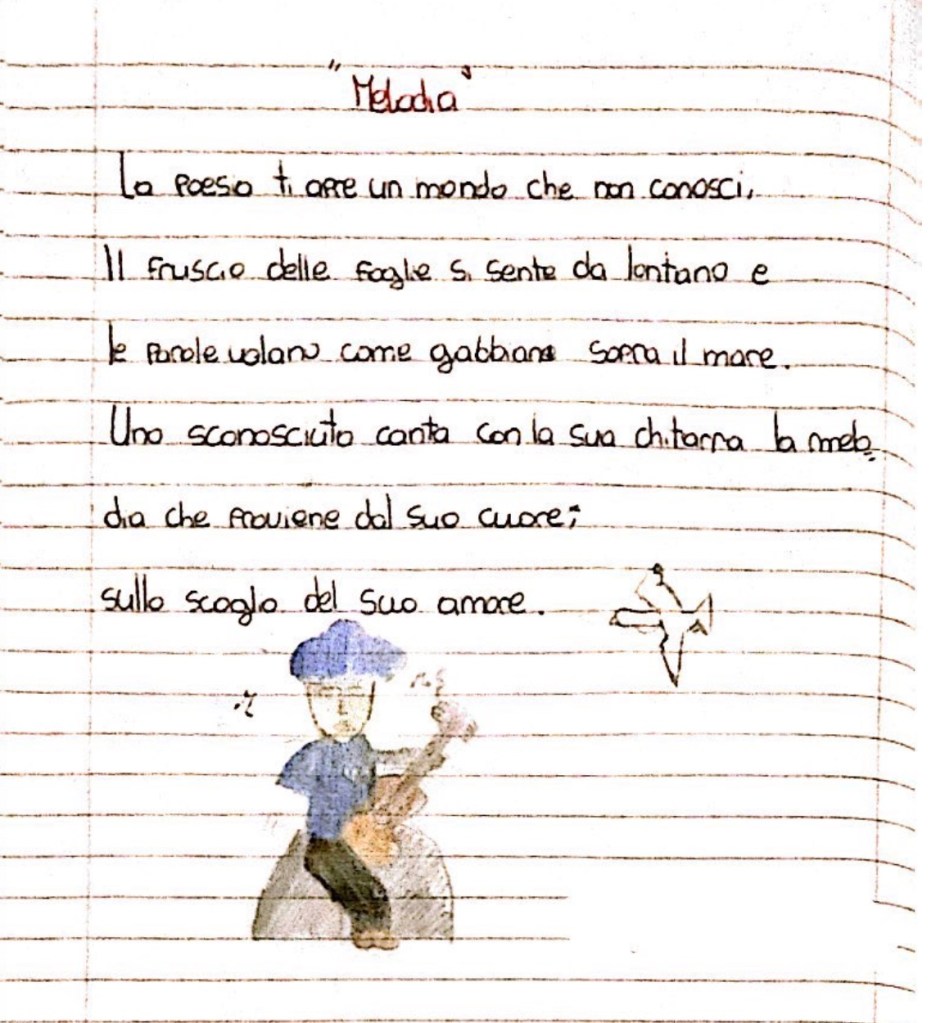 "Melodia"
La poesia ti apre un mondo che non conosci,
Il fruscio delle foglie si sente da lontano e
le parole volano come gabbiani sopra il mare.
Uno sconosciuto canta con la sua chitarra la melo-
dia che proviene dal suo cuore;
sullo scoglio del suo amore.